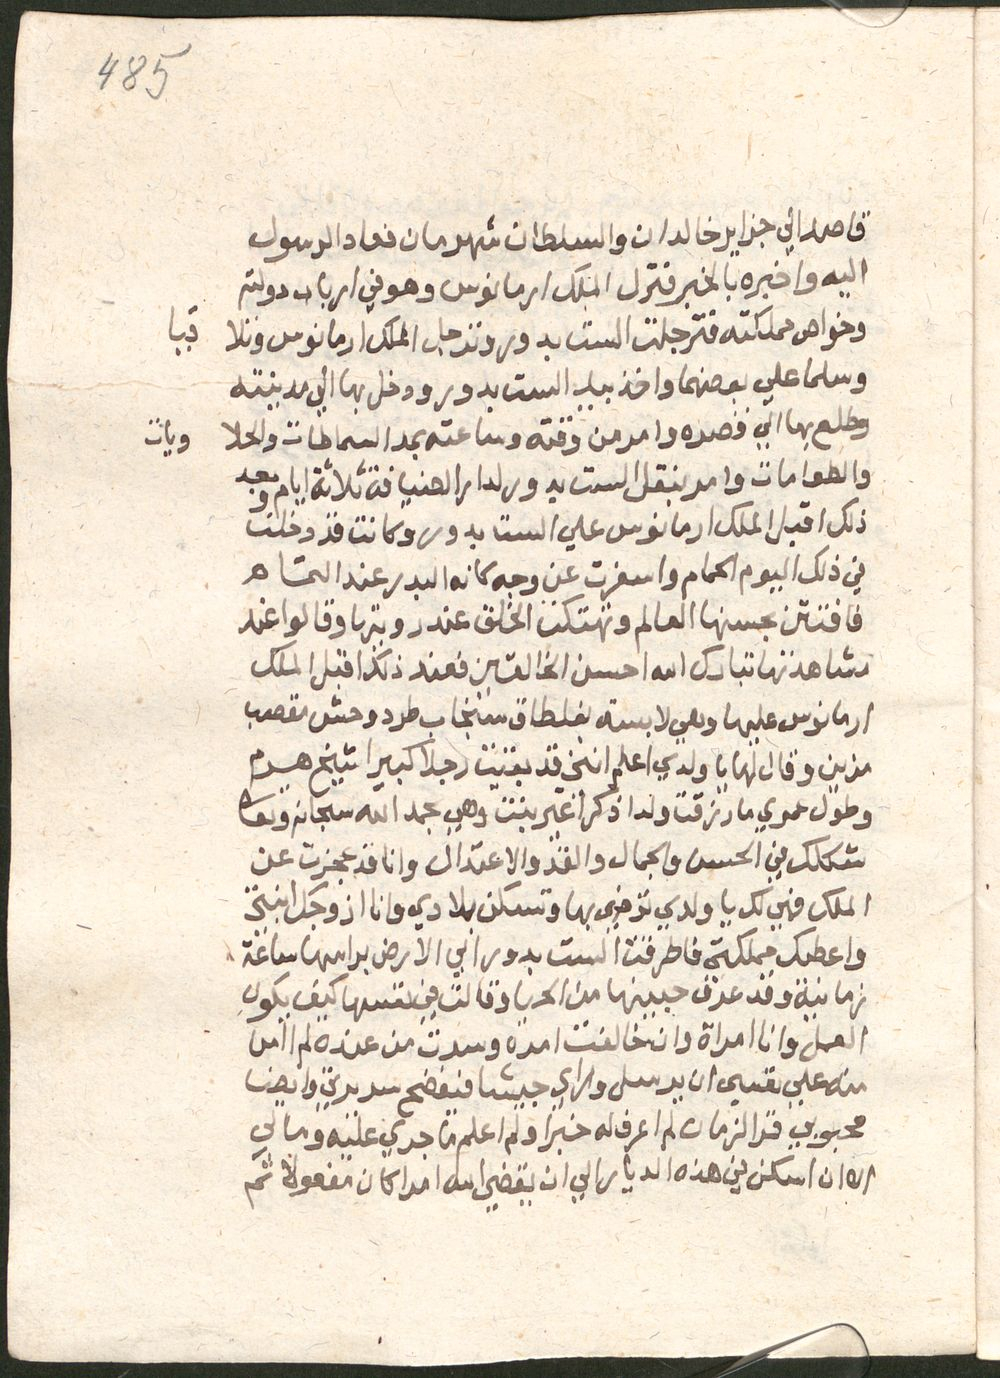 485
قاصدا الي جزاير خالدان والسلطان شهرمان فعاد الرسول
اليه واخبره بالخبر فنزل الملك ارمانوس وهو في ارباب دولته
وخواص مملكته فترجلت الست بدور وترجل الملك ارمانوس وتلا قيا
وسلما علي بعضهما واخذ بيد الست بدور ودخل بها الي مدينته
وطلع بها الي قصره وامر من وقته وساعته بمد السماطات والحلا ويات
والطعامات وامر بنقل الست بدور لدار الضيافة ثلاثة ايام وبعد
ذلك اقبل الملك ارمانوس علي الست بدور وكانت قد دخلت
في ذلك اليوم الحمام واسفرت عن وجه كانه البدر عند التمام
فافتتن بحسنها العالم وتهتكت الخلق عند رويتها وقالوا عند
مشاهدتها تبارك الله احسن الخالقين فعند ذلك اقبل الملك
ارمانوس عليها وهي لابسة بغلطاق سنجاب طرد وحش مقصب
مزين وقال لها يا ولدي اعلم انني قد بقيت رجلا كبيرا شيخ هرم
وطول عمري ما رزقت ولدا ذكرا غير بنت وهي بحمد الله سبحانه وتعا
شكلك في الحسن والجمال والقد والاعتدال وانا قد عجزت عن
الملك فهي لك يا ولدي ترضي بها وتسكن بلادي وانا ازوجك ابنتي
واعطيك مملكتي فاطرقت الست بدور الي الارض براسها ساعة
زمانية وقد عرق جبينها من الحيا وقالت في نفسها كيف يكون
العمل وانا امراة وان خالفت امره وسرت من عنده لم اامن
منه علي نفسي ان يرسل وراي جيشا فنفضح سريرتي وايضا
محبوبي قمر الزمان لم اعرف له خبرا ولم اعلم ما جري عليه وما لي
الا ان اسكن في هذه الديار الي ان يقضي الله امرا كان مفعولا ثم